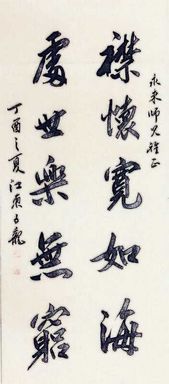 永來師兄雅正
襟懷寬如海
處世樂無窮
丁酉之夏江子龍